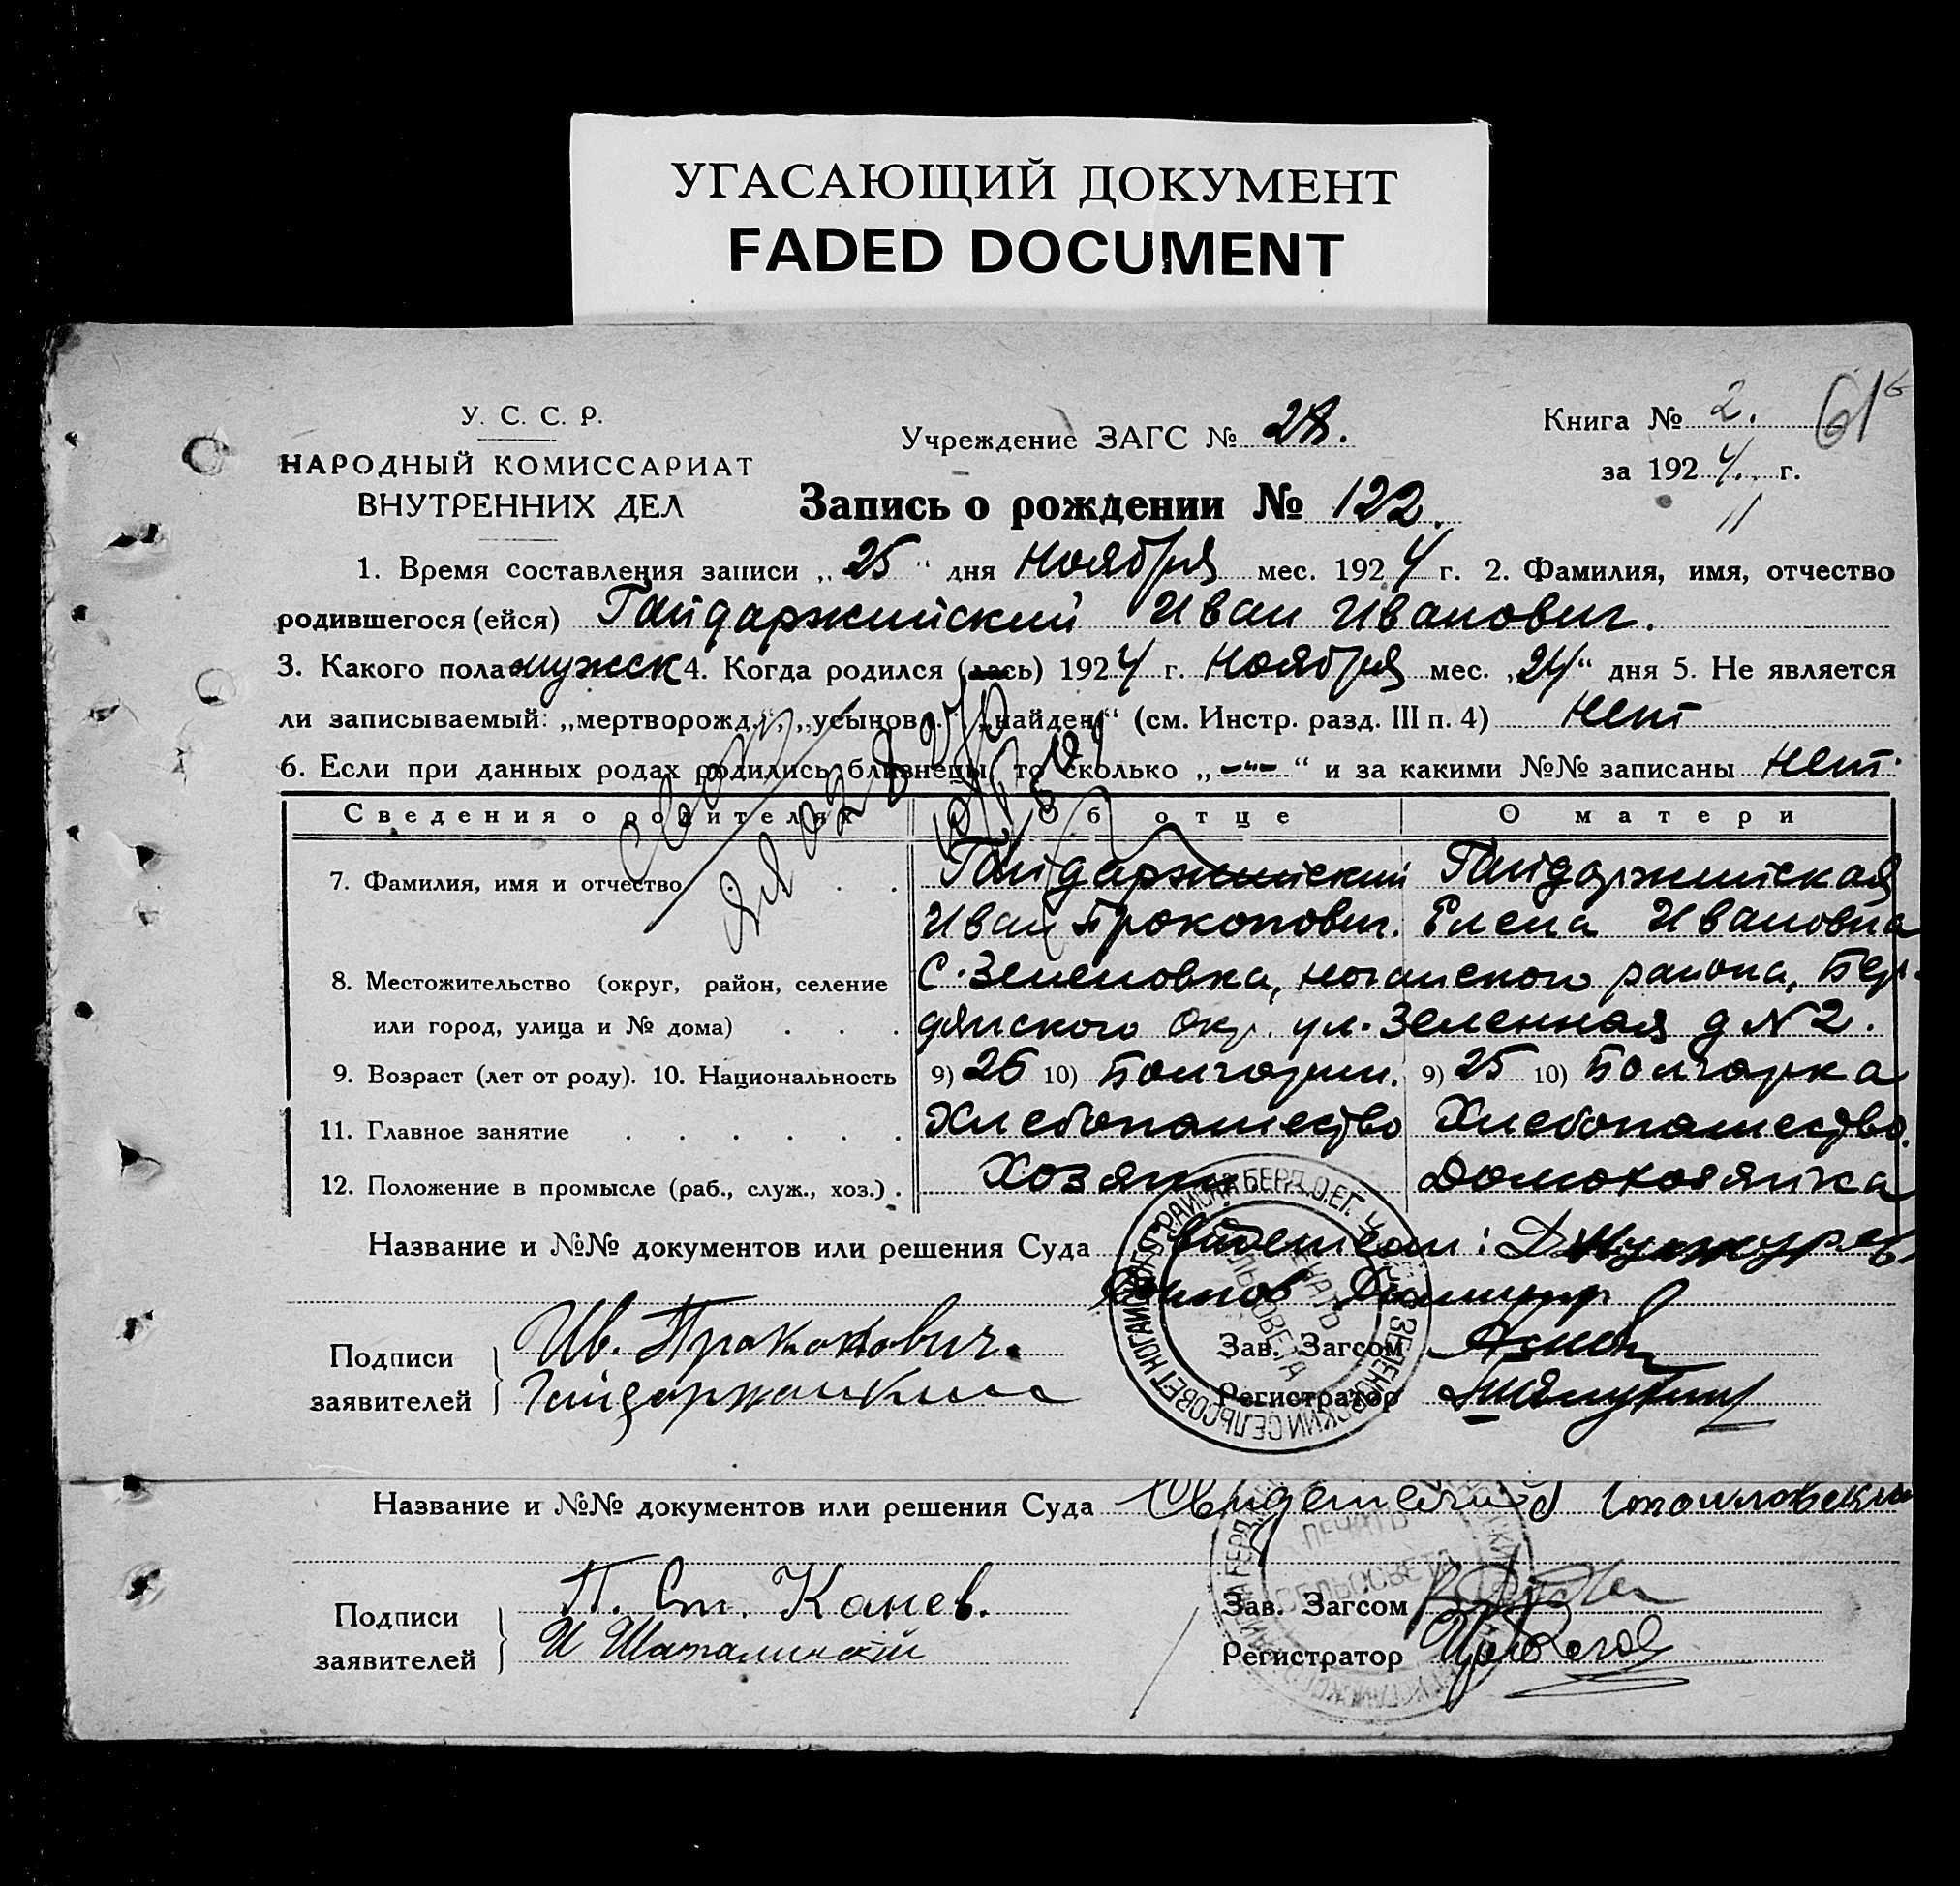 УГАСАЮЩИЙ ДОКУМЕНТ
FADED DOCUMENT
У. С. С. Р.
НАРОДНЫЙ КОМИССАРИАТ
ВНУТРЕННИХ ДЕЛ
Учреждение ЗАГС № 28.
Книга № 2. 61
за 1924 г.
11
Запись о рождении № 122.
1. Время составления записи „25“ дня Ноября мес. 1924 г. 2. Фамилия, имя, отчество
родившегося (ейся) Гайдаржийский Иван Иванович.
3. Какого пола мужск 4. Когда родился (лась) 1924 г. Ноября мес. „24“ дня 5. Не является
ли записываемый: „мертворожд.“, „усынов.“, „найден“ (см. Инстр. разд. III п. 4) нет
6. Если при данных родах родились близнецы, то сколько „-"-“ и за какими №№ записаны нет.
Сведения о родителях Об отце О матери
7. Фамилия, имя и отчество Гайдаржийский Гайдаржийская
Иван Прокопович. Елена Ивановна
8. Местожительство (округ, район, селение С. Зеленовка, Ногайского района, Бер-
или город, улица и № дома) дянского Окр. ул. Зеленная д N 2.
9. Возраст (лет от роду). 10. Национальность 9) 26 10) Болгарин. 9) 25 10) Болгарка
11. Главное занятие Хлебопашество Хлебопашество.
12. Положение в промысле (раб., служ., хоз.) Хозяин. Домохозяйка
Название и №№ документов или решения Суда
Димитр
Подписи заявителей Ив. Прокопович.
Зав. Загсом
Регистратор
НОГАЙСКОГО РАЙОНА БЕРД. ОКР. ЗЕЛЕНОВСКИЙ СЕЛЬСОВЕТ
ПЕЧАТЬ СЕЛЬСОВЕТА
Название и №№ документов или решения Суда
Подписи заявителей П. Ст. Канев.
И Шаталинский
Зав. Загсом
Регистратор
ПЕЧАТЬ СЕЛЬСОВЕТА